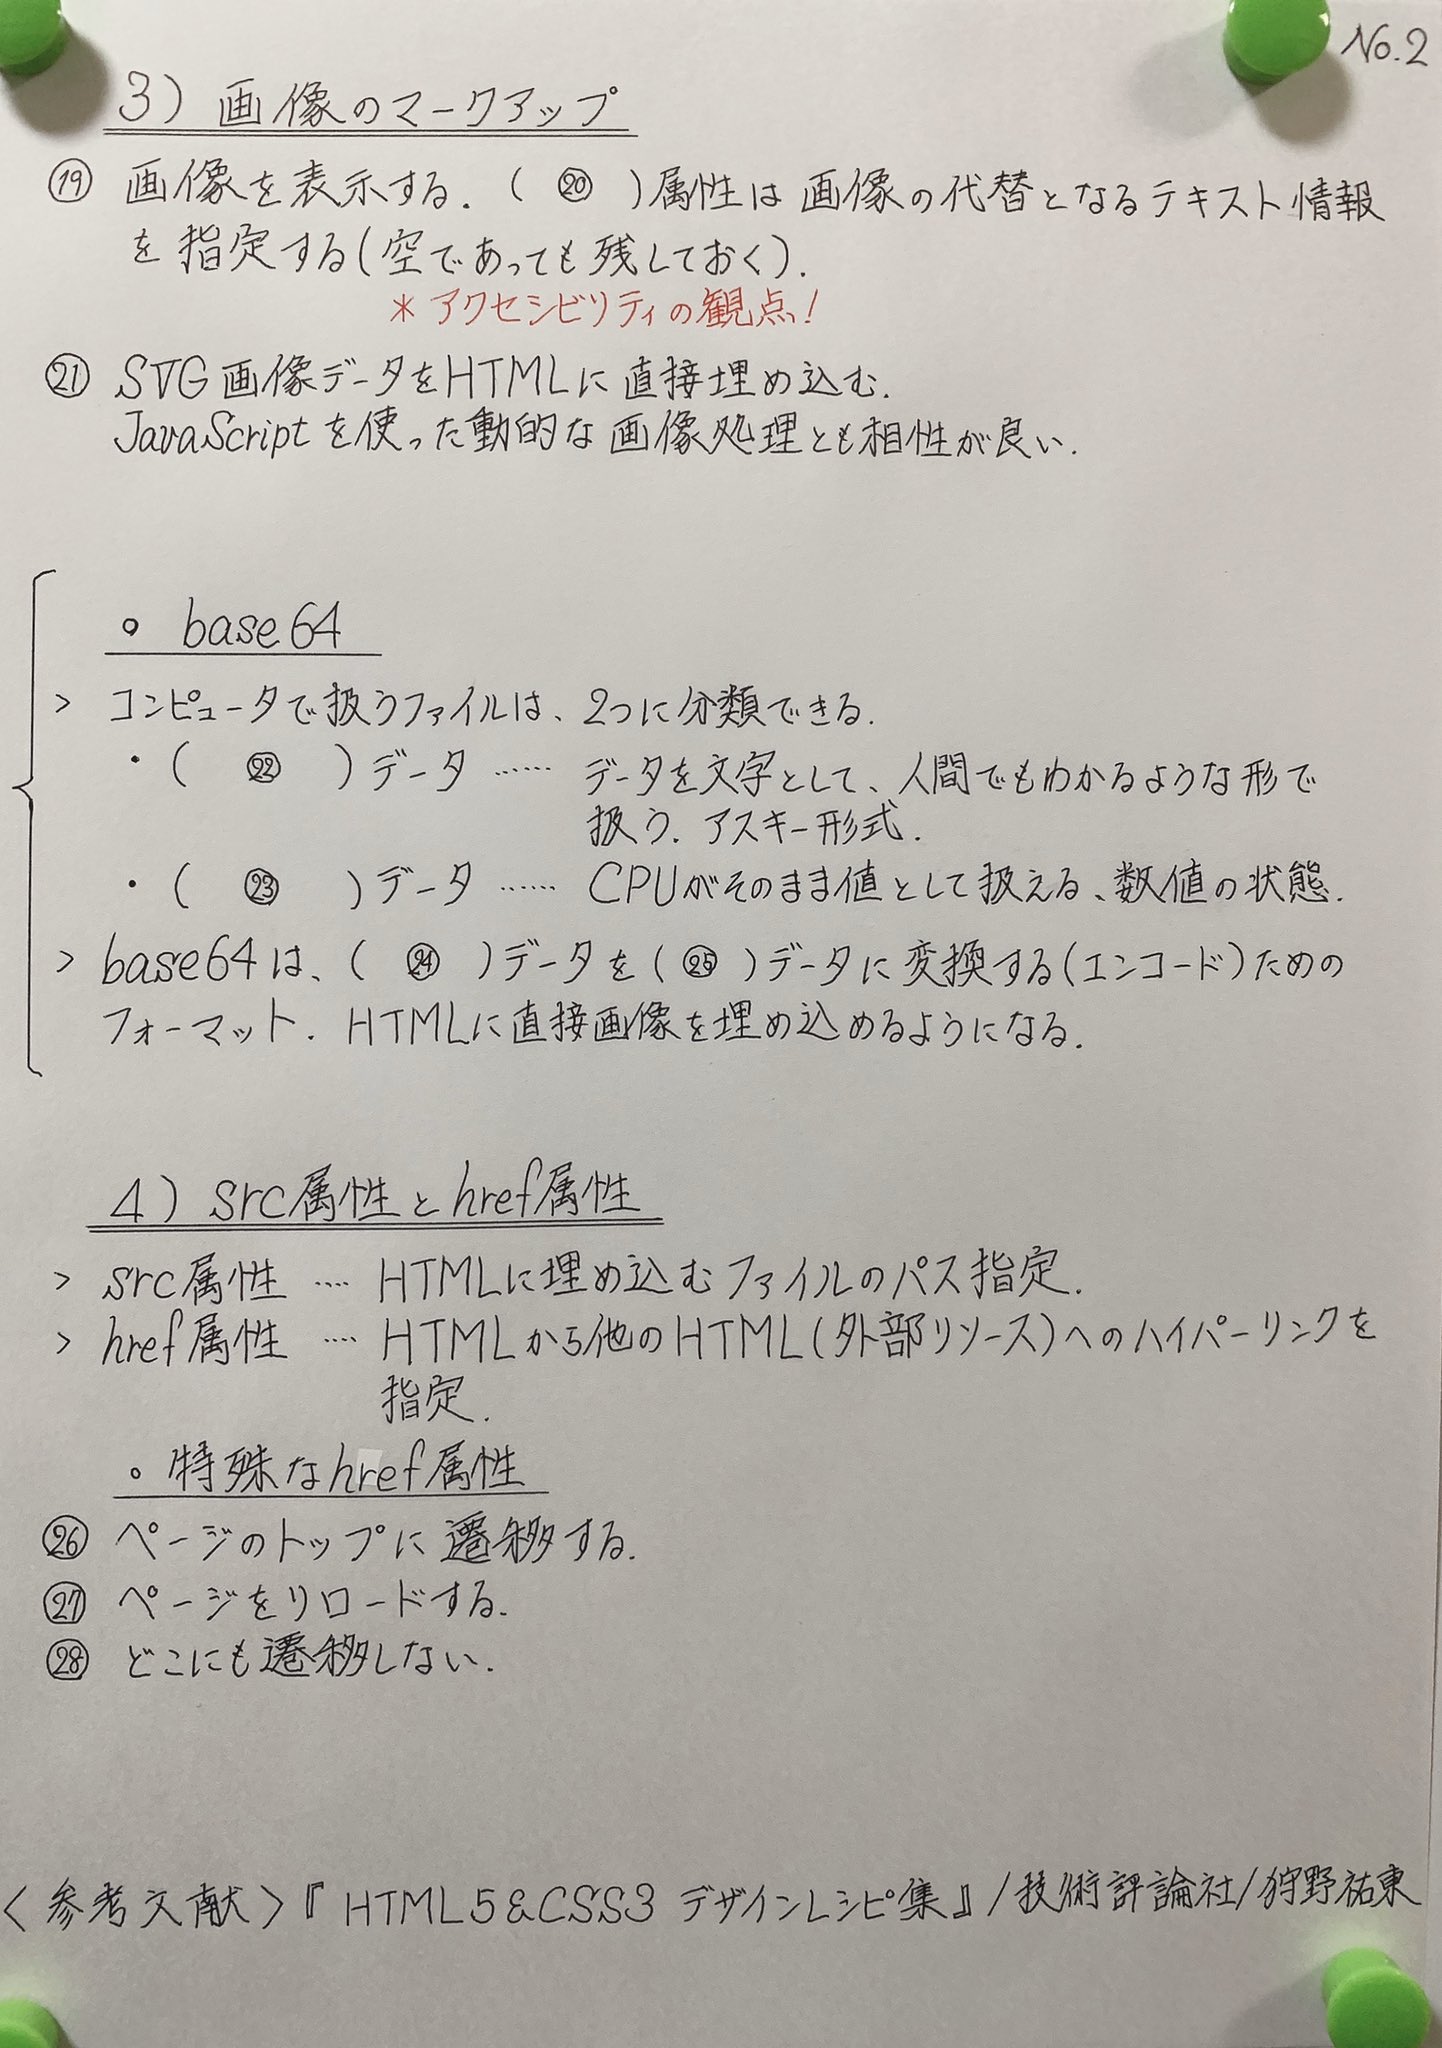 No.2
3) 画像のマークアップ
⑲ 画像を表示する. ( ⑳ )属性は画像の代替となるテキスト情報
を指定する(空であっても残しておく).
＊アクセシビリティの観点!
㉑ SVG画像データをHTMLに直接埋め込む.
JavaScriptを使った動的な画像処理とも相性が良い.
◦ base64
> コンピュータで扱うファイルは、2つに分類できる.
・( ㉒ )データ …… データを文字として、人間でもわかるような形で
扱う. アスキー形式.
・( ㉓ )データ …… CPUがそのまま値として扱える、数値の状態.
> base64は、( ㉔ )データを( ㉕ )データに変換する(エンコード)ための
フォーマット. HTMLに直接画像を埋め込めるようになる.
4) src属性とhref属性
> src属性 …. HTMLに埋め込むファイルのパス指定.
> href属性 …. HTMLから他のHTML(外部リソース)へのハイパーリンクを
指定.
◦ 特殊なhref属性
㉖ ページのトップに遷移する.
㉗ ページをリロードする.
㉘ どこにも遷移しない.
〈参考文献〉『HTML5&CSS3 デザインレシピ集』/技術評論社/狩野祐東